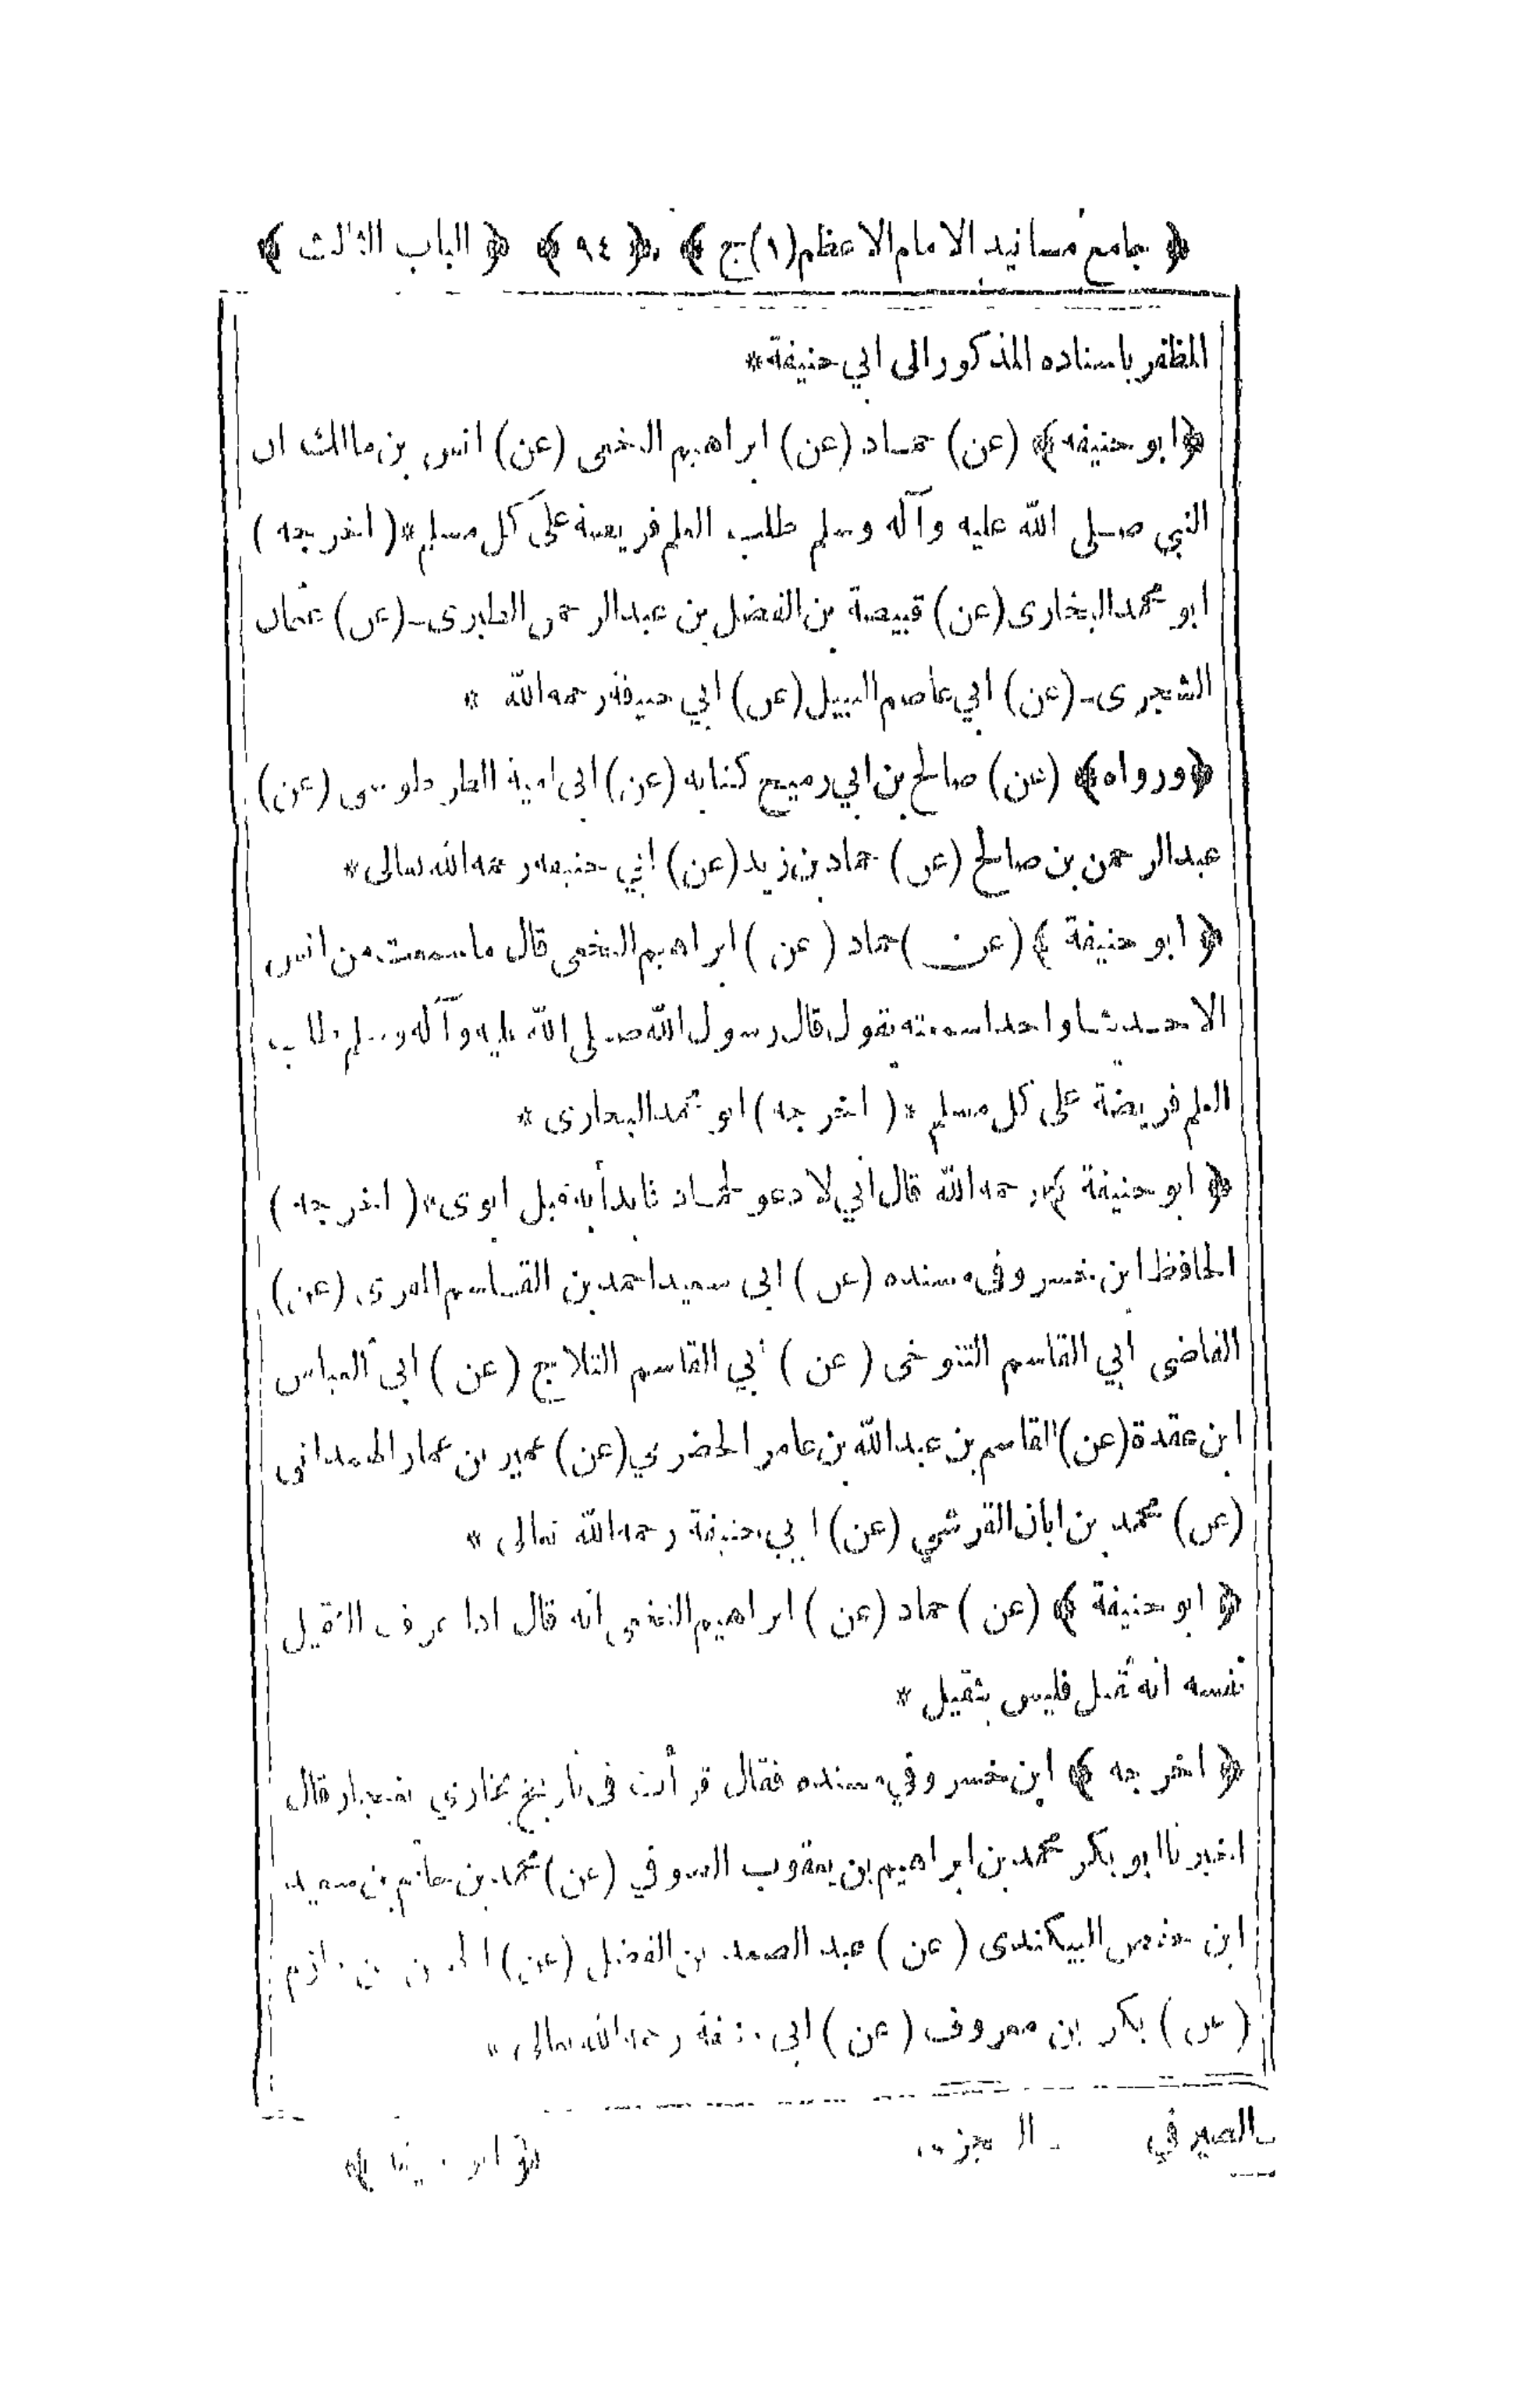 ﴿ جامع مسانيد الامام الاعظم (١) ج ﴾ ﴿ ٩٤ ﴾ ﴿ الباب الثالث ﴾
المظفر باسناده المذكور الى ابي حنيفة *
﴿ ابو حنيفه ﴾ (عن) حماد (عن) ابراهيم النخعى (عن) انس بن مالك ان
النبي صلى الله عليه وآله وسلم طلب العلم فريضة على كل مسلم * ( اخرجه )
ابو محمد البخارى (عن) قبيصة بن الفضل بن عبد الرحمن الطبرى - (عن) عثمان
الشجرى - (عن) ابي عاصم النبيل (عن) ابي حنيفة رحمه الله *
﴿ ورواه ﴾ (عن) صالح بن ابي رميح كتابه (عن) ابى امية الطرطوسى (عن)
عبد الرحمن بن صالح (عن) حماد بن زيد (عن) ابي حنيفه رحمه الله تعالى *
﴿ ابو حنيفة ﴾ (عن) حماد ( عن ) ابراهيم النخعى قال ما سمعت من انس
الا حديثا واحدا سمعته يقول قال رسول الله صلى الله عليه وآله وسلم طلب
العلم فريضة على كل مسلم * ( اخرجه ) ابو محمد البخارى *
﴿ ابو حنيفة ﴾ رحمه الله قال اني لادعو لحماد فابدأ به قبل ابوى * ( اخرجه )
الحافظ ابن خسرو في مسنده (عن) ابى سعيد احمد بن القاسم (عن)
القاضى ابي القاسم التنوخى ( عن ) ابي القاسم الثلاج ( عن ) ابى العباس
ابن عقدة (عن) القاسم بن عبد الله بن عامر الحضرمي (عن) عمير بن عمار الهمدانى
(عن) محمد بن ابان القرشي (عن) ابي حنيفة رحمه الله تعالى *
﴿ ابو حنيفة ﴾ (عن) حماد (عن) ابراهيم النخعى انه قال اذا عرف الثقيل
نفسه انه ثقيل فليس بثقيل *
﴿ اخرجه ﴾ ابن خسرو في مسنده فقال قرأت فى تاريخ بخارى لغنجار قال
اخبرنا ابو بكر محمد بن ابراهيم بن يعقوب (عن) محمد بن حاتم بن سعيد
ابن البيكندى ( عن ) عبد الصمد بن الفضل (عن)
(عن) بكر بن معروف ( عن ) ابى حنيفة رحمه الله تعالى *
- الصيرفي
﴿ ابو حنيفة ﴾